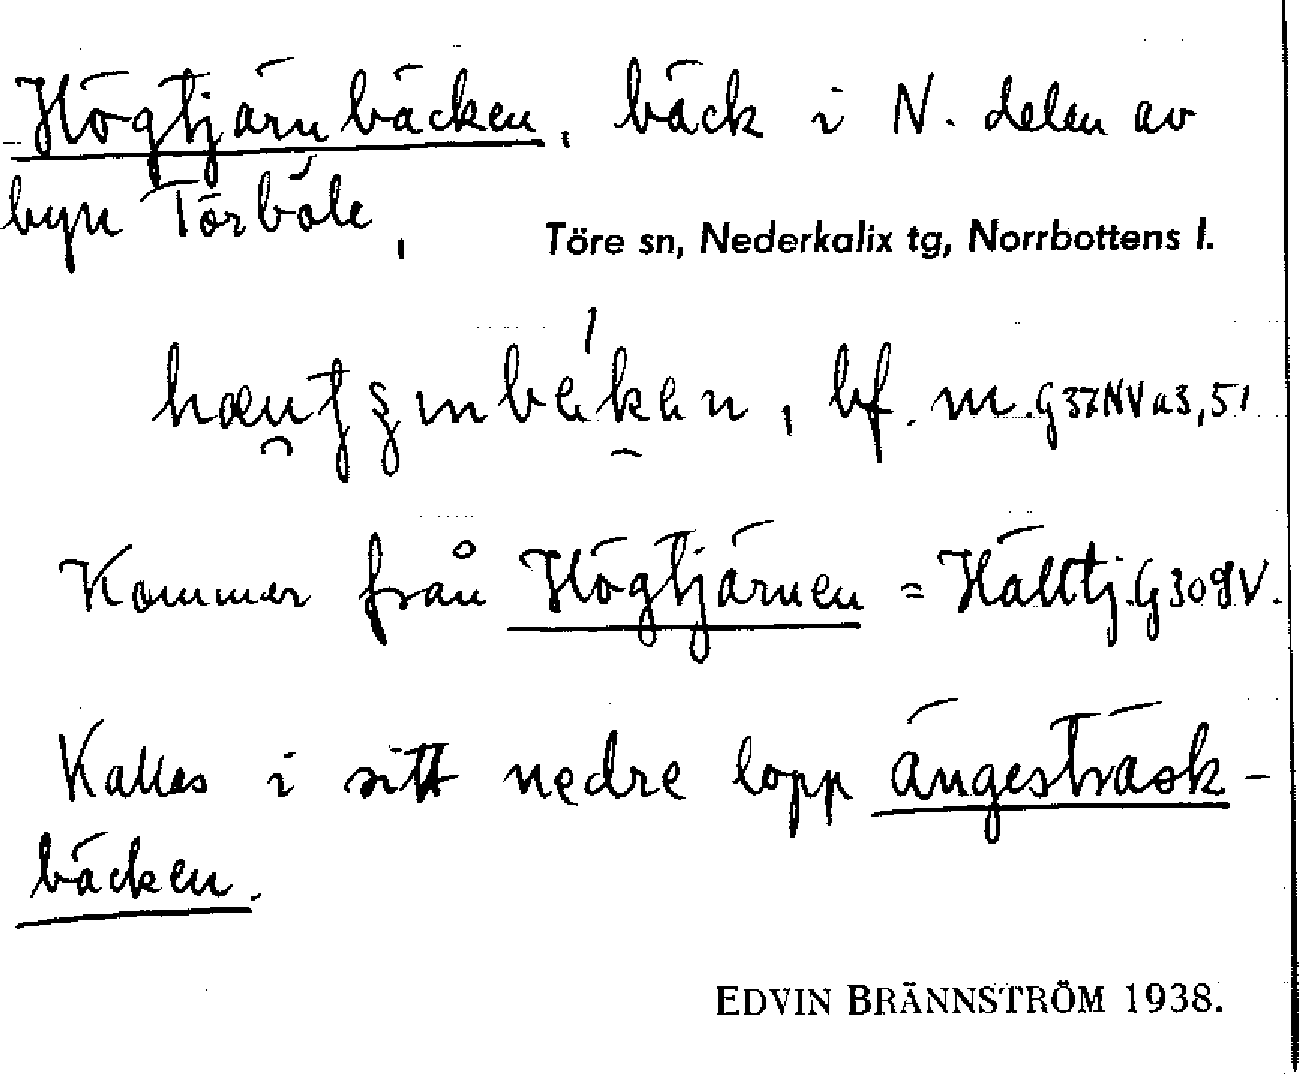 Högtjärnbäcken, bäck i N. delen av
byn Törböle,
Töre sn, Nederkalix tg, Norrbottens l.
bf. m. G37NVa3,51
Kommer från Högtjärnen = Hälltj. G30gV.
Kallas i sitt nedre lopp ängesträsk-
bäcken.
EDVIN BRÄNNSTRÖM 1938.